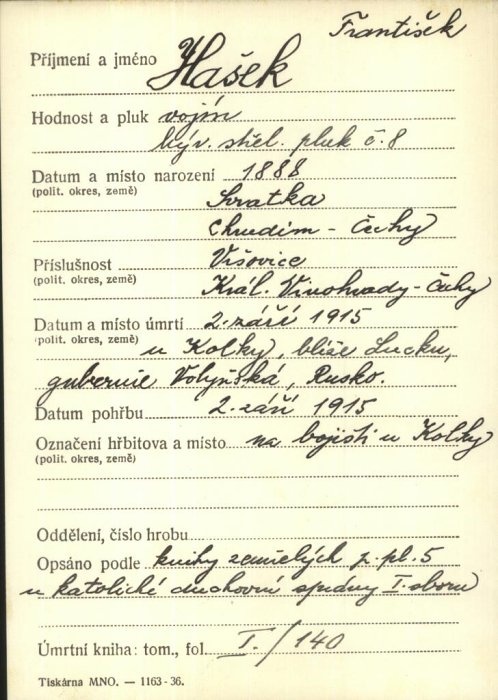 František
Příjmení a jméno Hašek
Hodnost a pluk vojín
býv. střel. pluk č. 8
Datum a místo narození 1888
(polit. okres, země) Svratka
Chrudim - Čechy
Příslušnost Vršovice
(polit. okres, země) Král. Vinohrady - Čechy
Datum a místo úmrtí 2. září 1915
(polit. okres, země) u Kolky, blíže Lucku,
gubernie Volyňská, Rusko.
Datum pohřbu 2. září 1915
Označení hřbitova a místo na bojišti u Kolky
(polit. okres, země)
Oddělení, číslo hrobu
Opsáno podle knihy zemřelých p. pl. 5
u katolické duchovní správy I. sboru
Úmrtní kniha: tom., fol. I./140
Tiskárna MNO. — 1163-36.